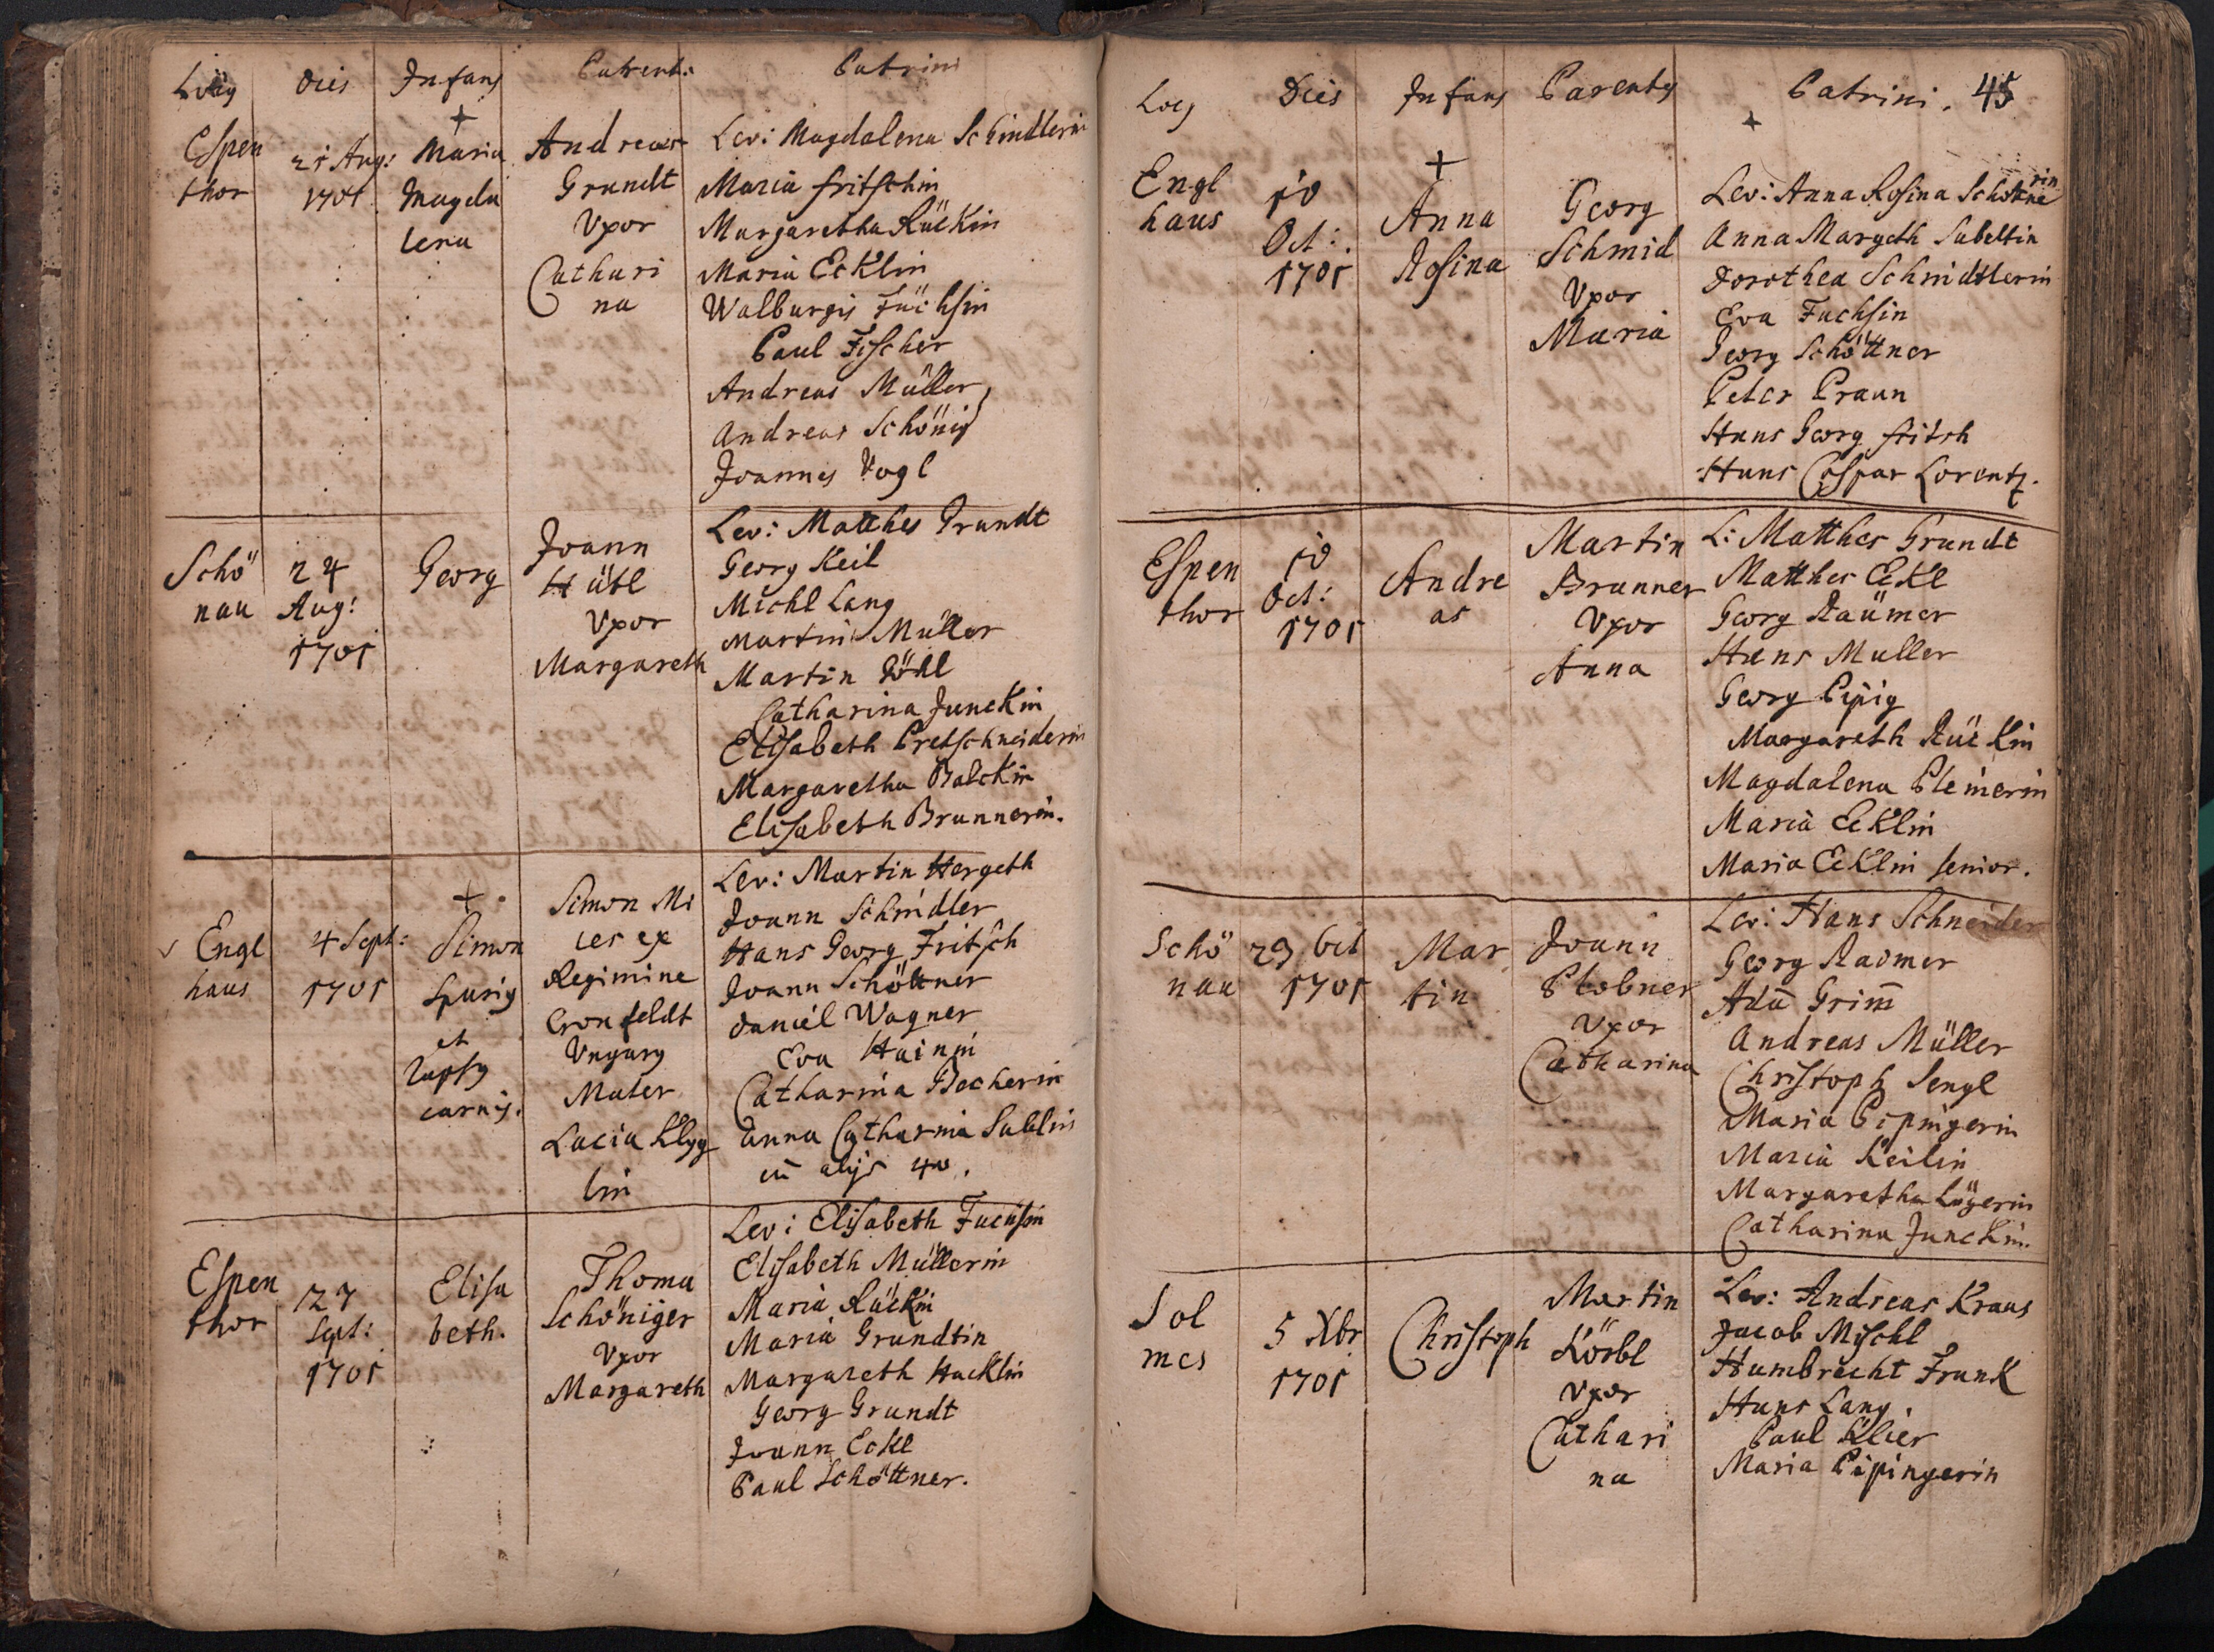 Locus Dies Infans Parent: Patrini
Espen
thor
21 Aug:
1701
Maria
Magda
lena
Andreas
Grundt
Vxor
Cathari
na
Lev: Magdalena Schindlerin
Maria fritschin
Margaretha Rückin
Maria Ecklin
Walburgis Füchsin
Paul Fischer
Andreas Müller
Andreas Schönig
Joannes Vogl
Schö
nau
24
Aug:
1701
Georg
Joann
Hübl
Vxor
Margareth
Lev: Matthes Grundt
Georg Keil
Michl Lang
Martin Müller
Martin
Catharina Junckin
Elisabeth Pretschneiderin
Margaretha Balckin
Elisabeth Brunnerin.
Engl
haus
4 Sept:
1701
Simon
Spurig
et
lapsy
carnis.
Simon Mi
les ex
Regimine
Cronfeldt
Vngarg
Mater
Lucia Klyg
lin
Lev: Martin Hergeth
Joann Schindler
Hans Georg Fritsch
Joann Schöttner
Daniel Wagner
Eva Hainin
Catharina Becherin
Anna Catharina Sablin
cū alijs 40.
Espen
thor
27
Sept:
1701
Elisa
beth.
Thoma
Schöniger
Vxor
Margareth
Lev: Elisabeth Fuchsin
Elisabeth Müllerin
Maria Rückin
Maria Grundtin
Margareth Hacklin
Georg Grundt
Joann Eckl
Paul Schöttner.
Locs Dies Infans Parentes Patrini. 45
Engl
haus
10
Oct:
1701
Anna
Rosina
Georg
Schmid
Vxor
Maria
Lev: Anna Rosina Schöttnerin
Anna Margeth Sabeltin
Dorothea Schmidtlerin
Eva Fuchsin
Georg Schöttner
Peter Praun
Hans Georg fritsch
Hans Caspar Lorentz.
Espen
thor
10
Oct:
1701
Andre
as
Martin
Brunner
Vxor
Anna
L: Matthes Grundt
Matthes Eckl
Georg Raümer
Hans Muller
Georg Pipig
Margareth Rückin
Magdalena Pleinerin
Maria Ecklin
Maria Ecklin senior.
Schö
nau
29 Oct
1701
Mar
tin
Joann
Plobner
Vxor
Catharina
Lev: Hans Schneider
Georg Raomer
Adā Grim̄
Andreas Müller
Christoph Sengl
Maria Pipingerin
Maria Keilin
Margaretha Lögerin
Catharina Junckin.
Sol
mes
5 Xbr
1701
Christoph
Martin
Körbl
Vxor
Cathari
na
Lev: Andreas Kraus
Jacob Mischl
Humbrecht Frank
Hans Lang.
Paul Klier
Maria Pipingerin